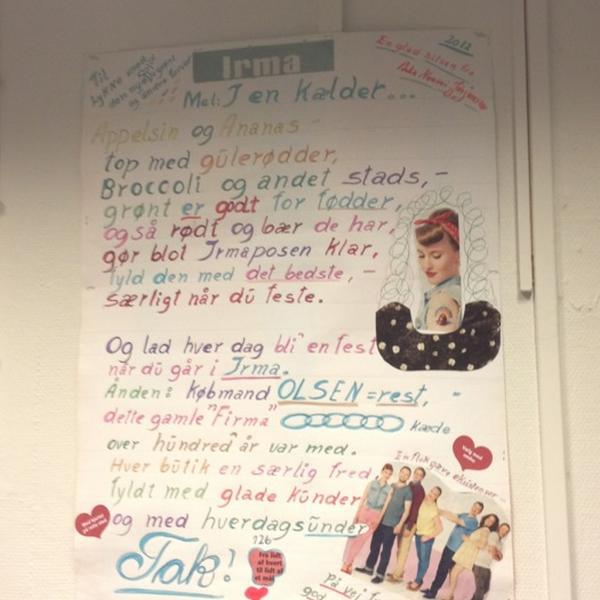 Irma
2012
En glad hilsen fra
Til
lykke med
den nye
Mel: I en Kælder...
Appelsin og Ananas
top med gulerødder,
Broccoli og andet stads,-
grønt er godt for fødder,
også rødt og bær de har,
gør blot Irmaposen klar,
fyld den med det bedste, -
særligt når du feste.
Og lad hver dag bli' en fest
når du går i Irma.
Ånden: Købmand OLSEN = rest, -
dette gamle "Firma" kæde
over hundred år var med.
Hver butik en særlig fred,
fyldt med glade kunder
og med hverdagsunder
Tak!
126
Fra lidt
af hvert
til lidt af
et mål
En flok gæve ekspedienter...
På vej
god